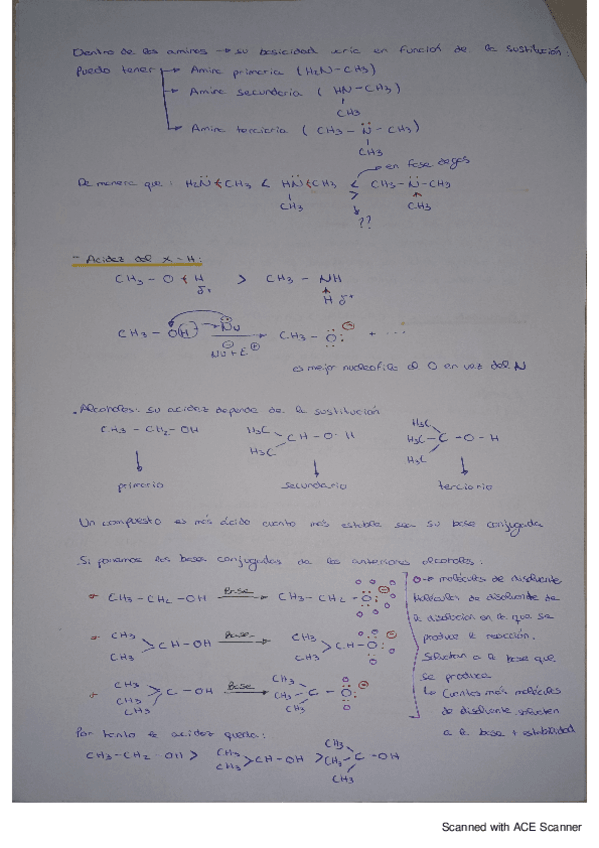 Dentro de las aminas → su basicidad varía en función de la sustitución:
Puedo tener → Amina primaria (H2N-CH3)
→ Amina secundaria (HN-CH3)
CH3
→ Amina terciaria (CH3-N-CH3)
CH3
en fase de gas
De manera que: H2N CH3 < HN CH3 < CH3-N-CH3
>
CH3 CH3
??
- Acidez del X-H:
CH3-O H > CH3-NH
δ+ H δ+
CH3-OH Nu → CH3-O: + ...
Nu + E
es mejor nucleófilo el O en vez del N
. Alcoholes: su acidez depende de la sustitución
CH3-CH2-OH H3C CH-O-H H3C H3C-C-O-H
H3C H3C
primario secundario terciario
Un compuesto es más ácido cuanto más estable sea su base conjugada
Si ponemos las bases conjugadas de los anteriores alcoholes:
CH3-CH2-OH Base → CH3-CH2-O
CH3 CH-OH Base → CH3 CH-O
CH3 CH3
CH3 CH3 C-OH Base → CH3 CH3 C-O
CH3 CH3
O → moléculas de disolvente
Moléculas de disolvente de
la disolución en la que se
produce la reacción.
Solvatan a la base que
se produce
↳ Cuantas más moléculas
de disolvente solvaten
a la base + estabilidad
Por tanto la acidez queda:
CH3-CH2-OH > CH3 CH-OH > CH3 CH3 C-OH
CH3 CH3
Scanned with ACE Scanner